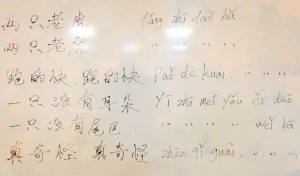 两只老虎 liǎng zhī lǎo hǔ
两只老虎 〃 〃 〃 〃
跑的快 跑的快 Pǎo de kuài. 〃 〃 〃
一只没有耳朵 Yì zhī méi yǒu ěr duō
一只没有尾巴 〃 〃 〃 〃 wěi bā
真奇怪 真奇怪 zhēn qí guài. 〃 〃 〃